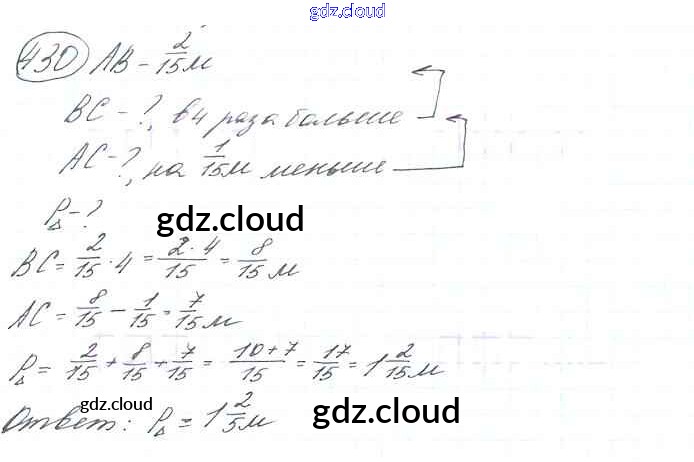 gdz.cloud
430 AB - 2/15 м
BC - ?, в 4 раза больше
AC - ?, на 1/15 м меньше
P△ - ?
gdz.cloud
BC = 2/15 · 4 = 2·4/15 = 8/15 м
AC = 8/15 - 1/15 = 7/15 м
P△ = 2/15 + 8/15 + 7/15 = 10+7/15 = 17/15 = 1 2/15 м
gdz.cloud
Ответ: P△ = 1 2/5 м
gdz.cloud